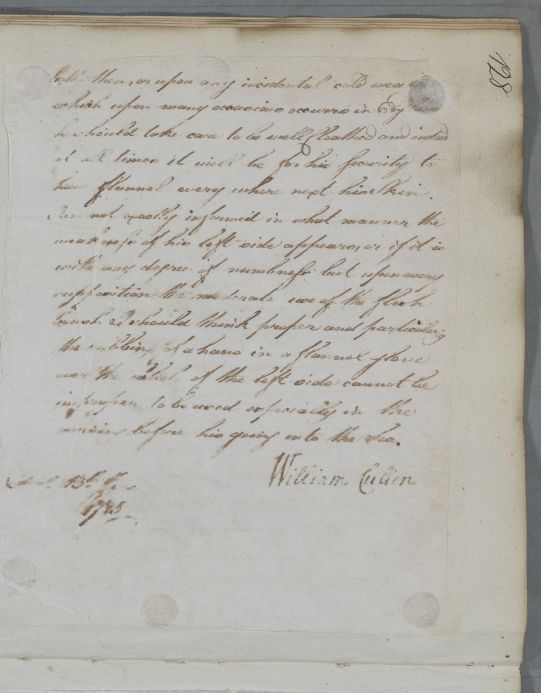 128
then, or upon any incidental cold
which upon many occasions occurrs in
he should take care to be well Cloathed and indeed
at all times it will be for his security to
have flannel every where next his skin.
I am not exactly informed in what manner the
weakness of his left side appears, or if it is
with any degree of numbness but upon every
supposition the moderate use of the flesh
brush I should think proper and particularly
the rubbing of a hand in a flannel glove
over the whole of the left side cannot be
improper to be used especially in the
morning before his going into the Sea.
William Cullen
13th
1785